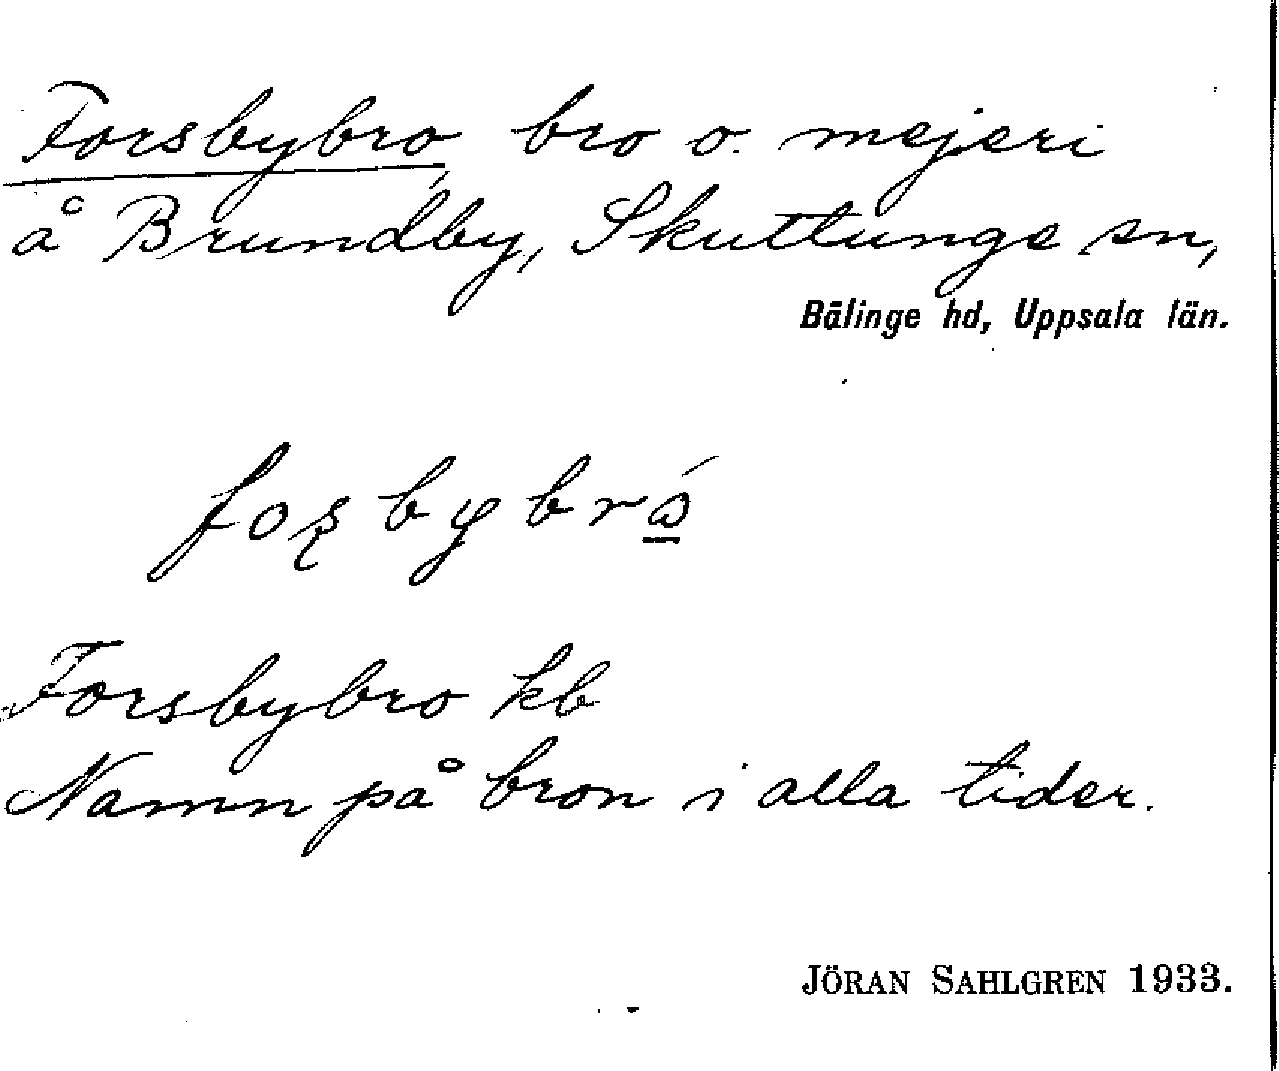 Forsbybro, bro o. mejeri
å Brundby, Skuttunge sn,
Bälinge hd, Uppsala län.
Forsbybro kb
Namn på bron i alla tider.
JÖRAN SAHLGREN 1933.